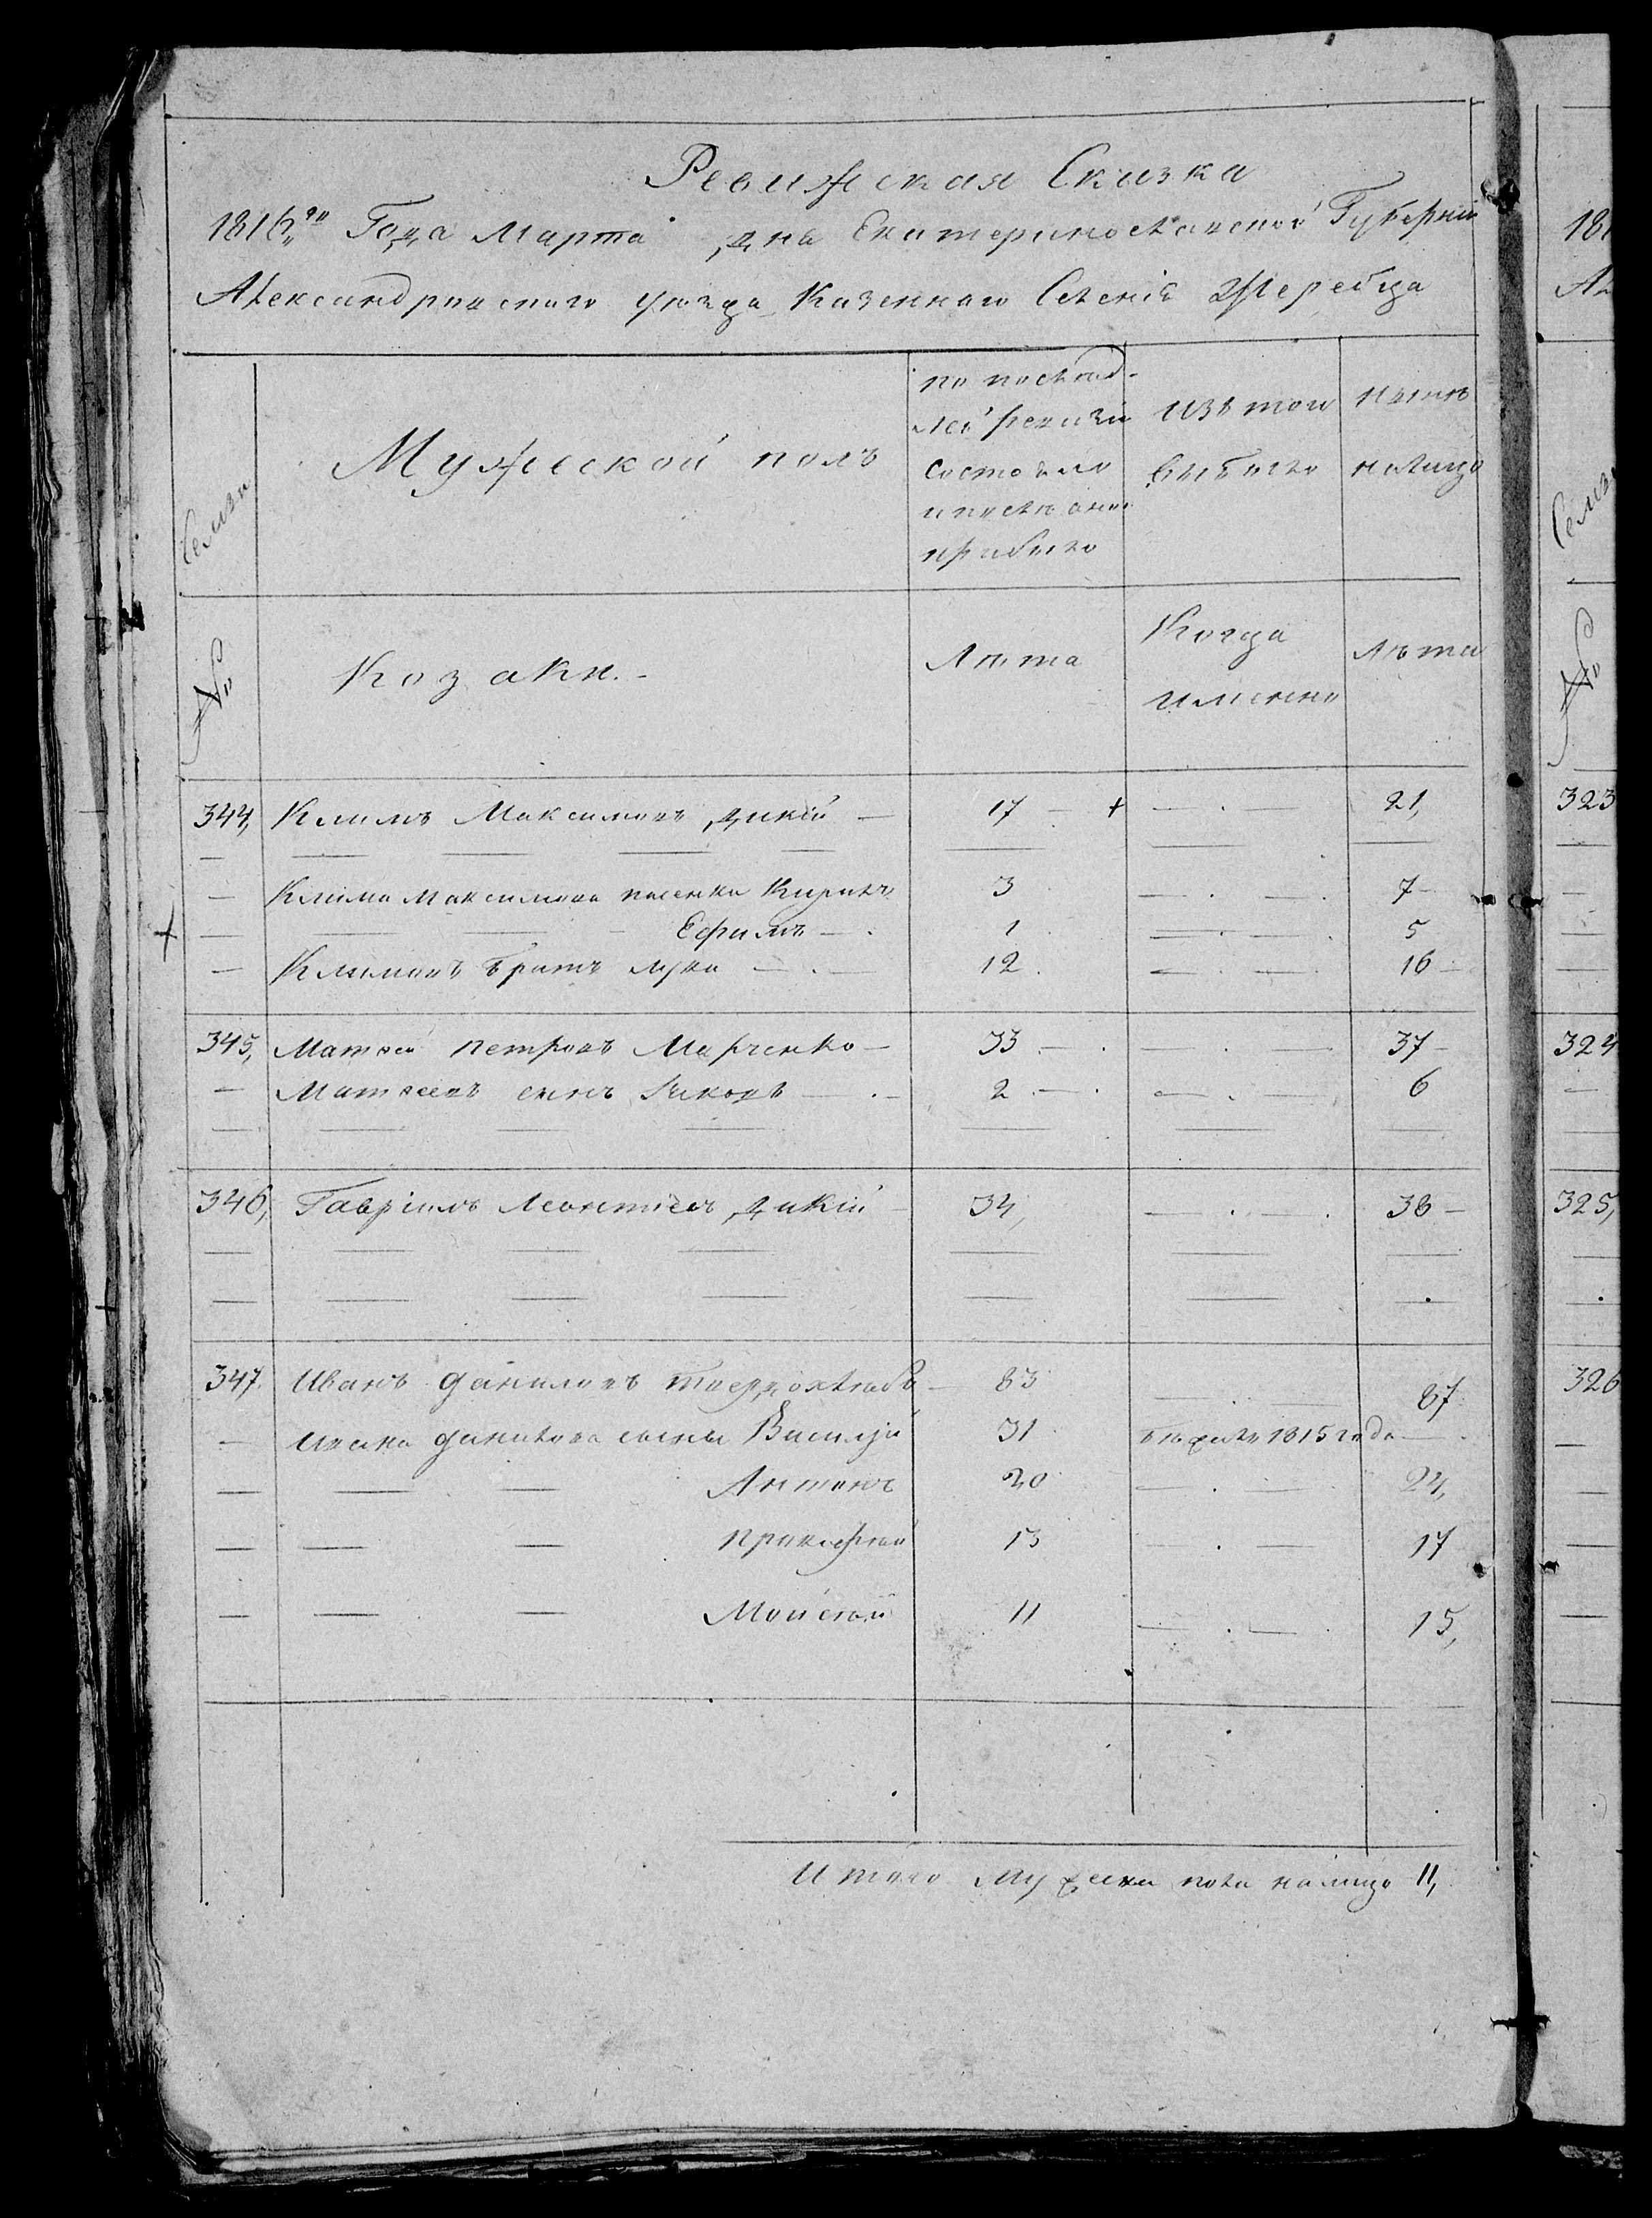 Ревижская Сказка
1816го Года Марта дня Екатеринославской Губернии
Александровского уюзда Казенного Селенiя Жеребца
Семьи
Мужеской полъ
по послѣд-
ней ревизiи
состояло
и послѣ оной
прибыло
изъ того
выбыло
нынѣ
налицо
№
Козаки.-
Лѣта
Когда
именно
Лѣта
344, Климъ Максимовъ Дикiй — 17 — + — . — 21,
— Клима Максимова пасенки Кирилъ 3 — . — . 7 —
— Ефимъ — . 1 — . — . 5
— Климовъ братъ Лука — . — 12 . — . — 16 —
345, Матвей Петровъ Марченко — 33 . — . — . — 37 —
— Матвеевъ сынъ Яковъ — . — 2 . — . — . — 6
346, Гаврiилъ Леонтiевъ Дикiй — 34, — . — . 38 —
347. Иванъ Даниловъ Твердохлѣбъ — 83 — . — 87
— Ивана Данилова сыны Василiй 31 въ бѣгахъ 1815 года — .
— — — Антонъ 20 — . — 24,
— — — Прокофей 13 — . — 17
— — — Мойсей 11 — . — . 15,
Итого мужеска пола налицо 11,
181
Ал
Семьи
№
323
324
325,
326